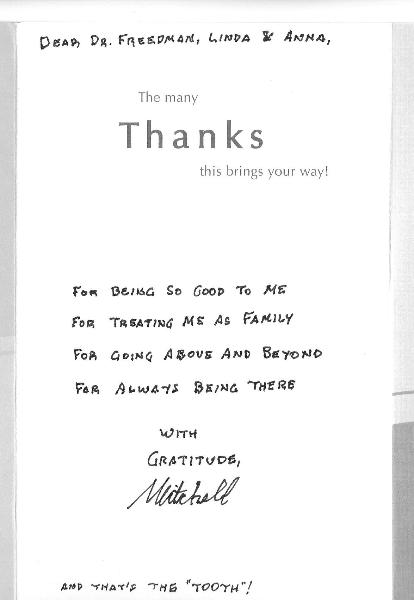 DEAR DR. FREEDMAN, LINDA & ANNA,
The many
Thanks
this brings your way!
FOR BEING SO GOOD TO ME
FOR TREATING ME AS FAMILY
FOR GOING ABOVE AND BEYOND
FOR ALWAYS BEING THERE
WITH
GRATITUDE,
Mitchell
AND THAT'S THE "TOOTH"!